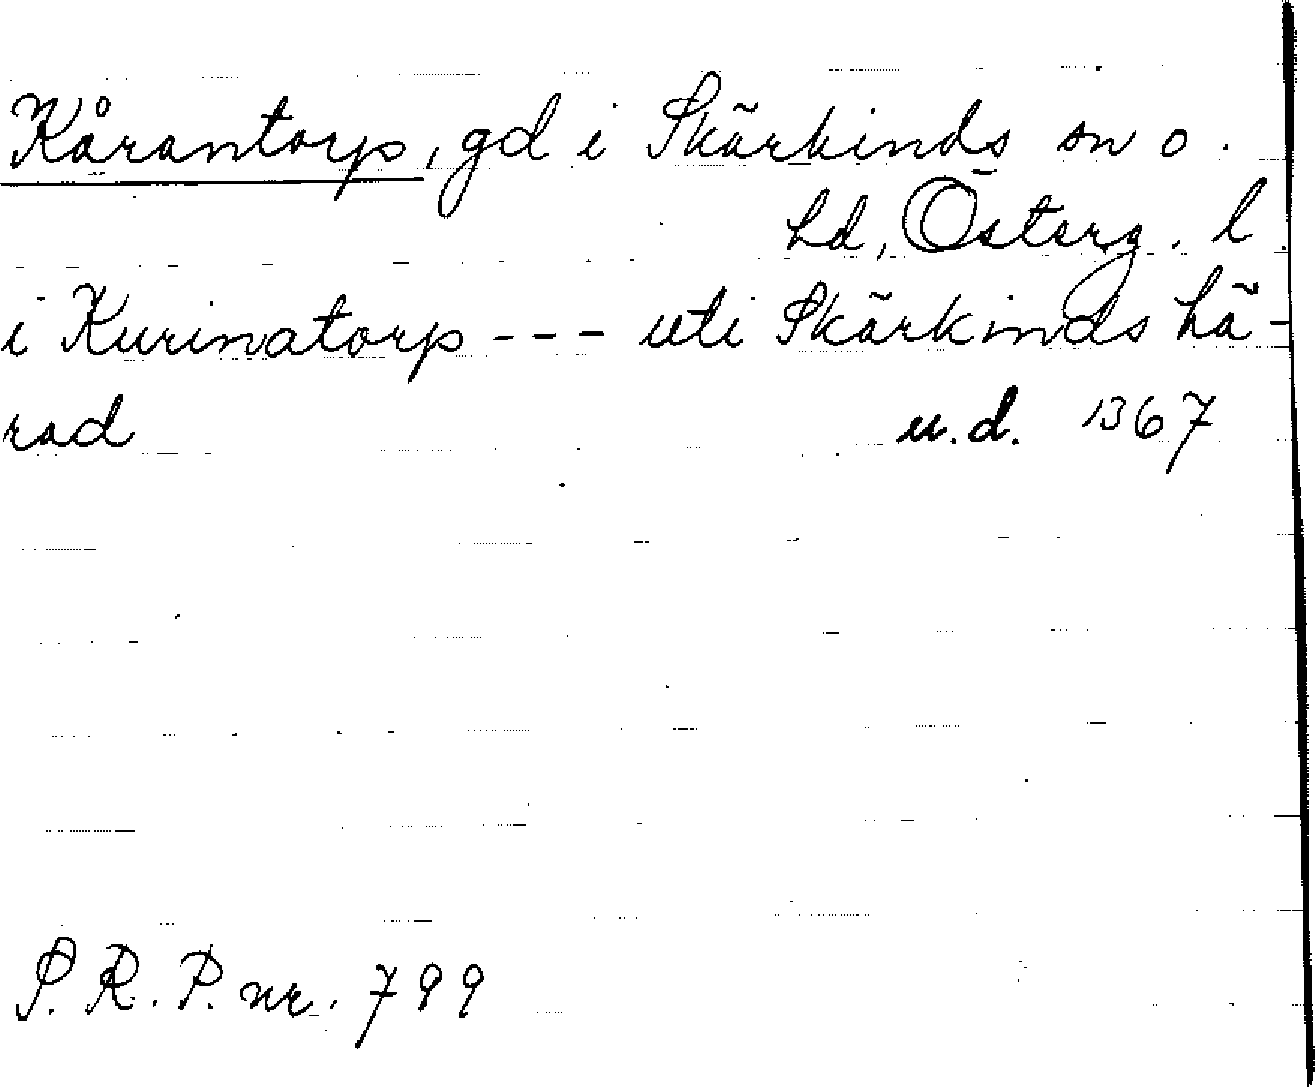 Kårantorp, gd i Skärkinds sn o.
hd, Österg. l.
i Kurinatorp --- uti Skärkinds hä-
rad u.d. 1367
S.R.P. nr. 799